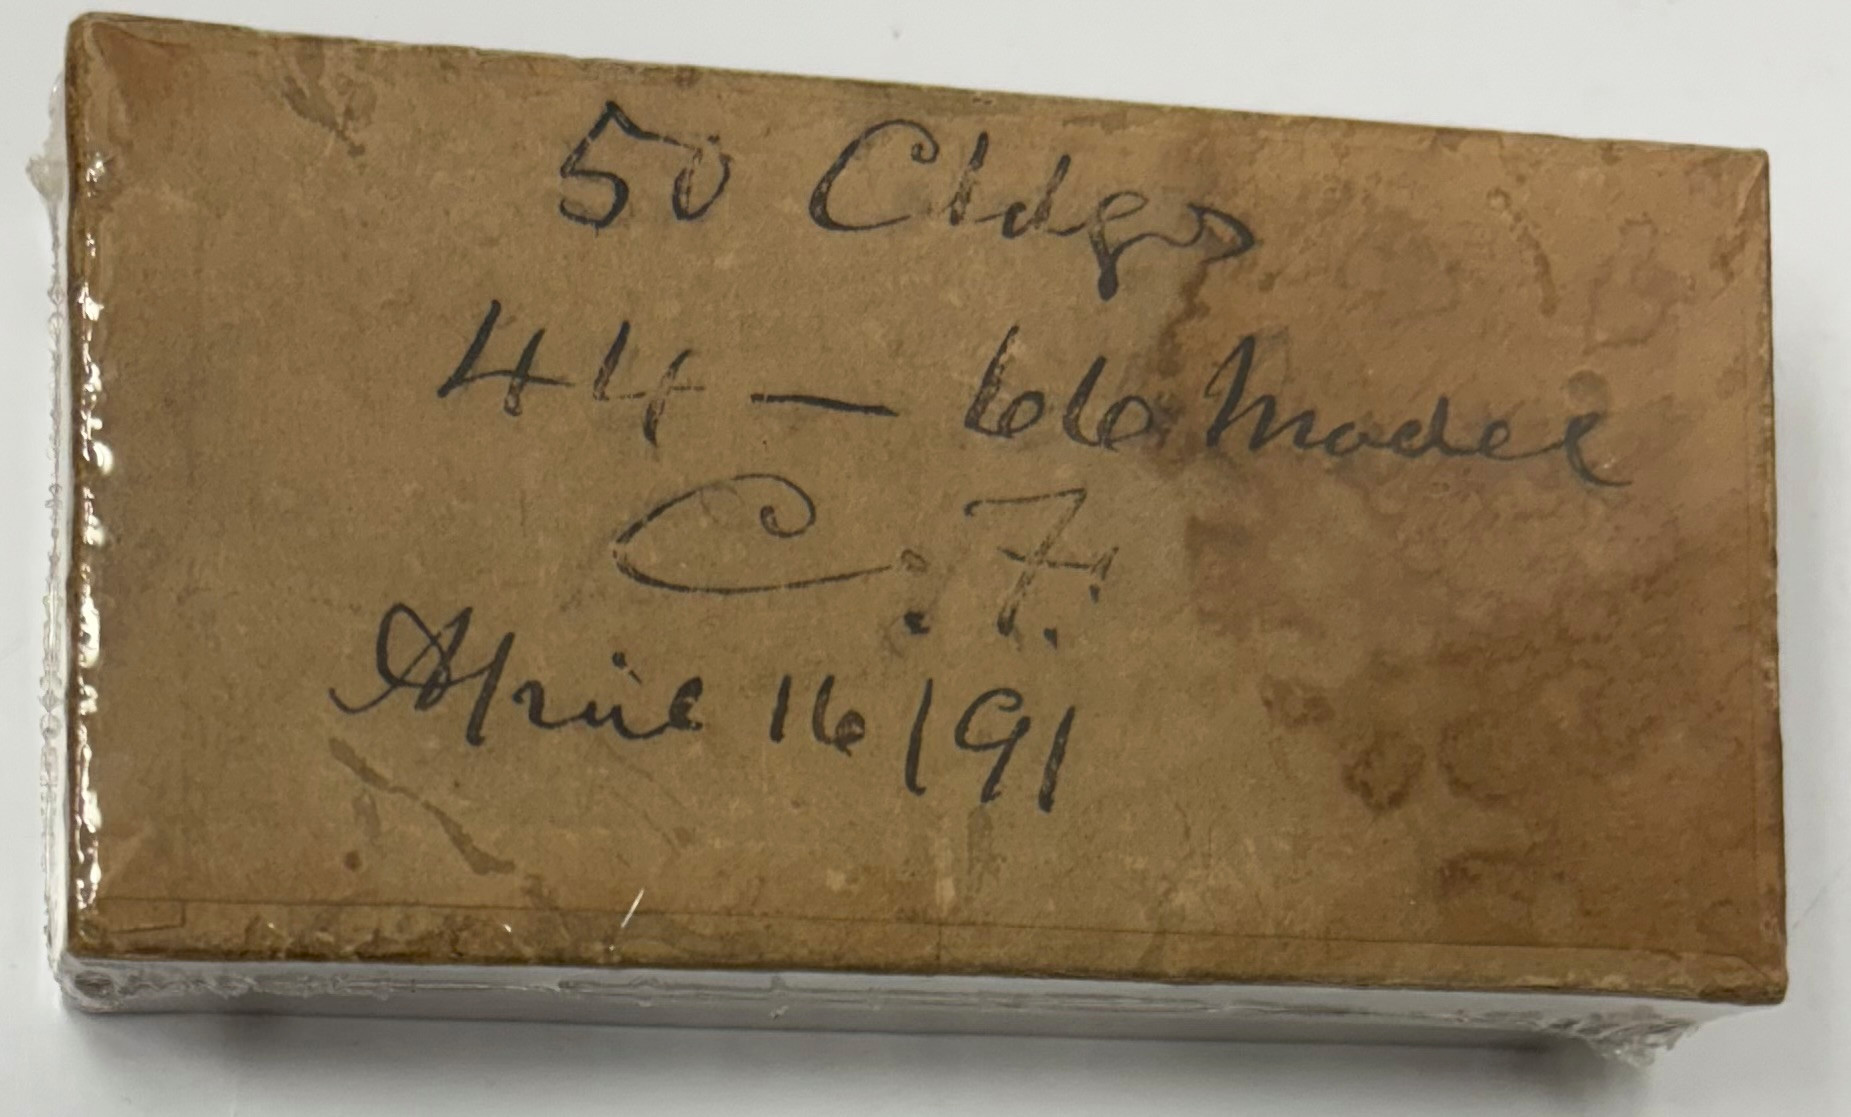 50 Ctdgs
44 — 66 Model
C. F.
April 16/91